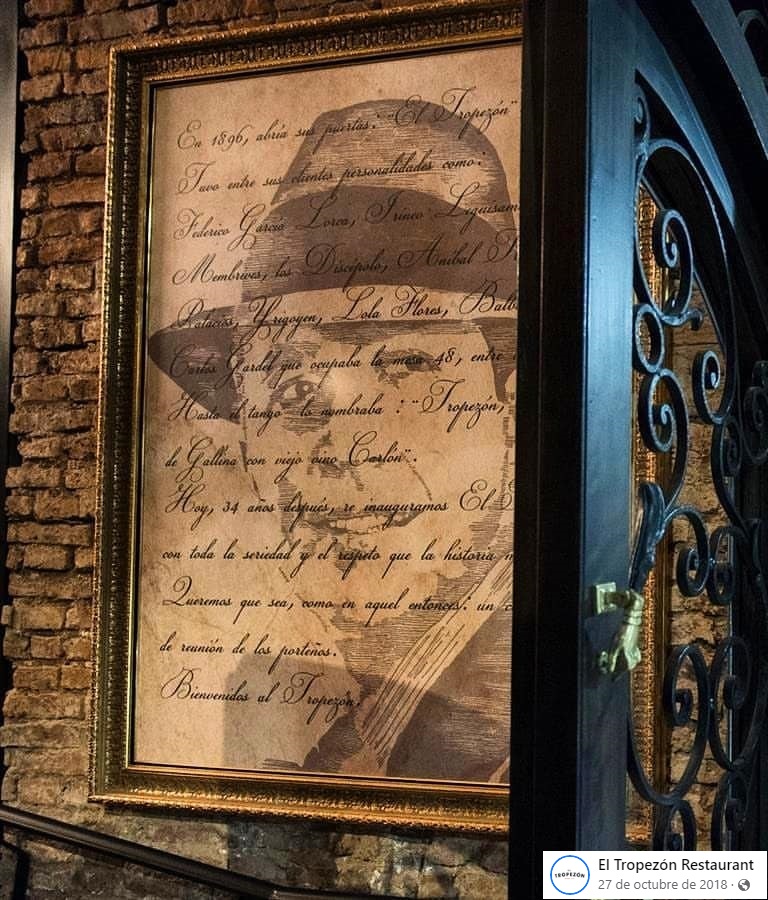 En 1896, abría sus puertas: "El Tropezón"
Tuvo entre sus clientes personalidades como:
Federico García Lorca, Irineo Leguisam
Membrives, los Discépolo, Aníbal
Palacios, Yrigoyen, Lola Flores, Balb
Carlos Gardel que ocupaba la mesa 48, entre
Hasta el tango lo nombraba : "Tropezón,
de Gallina con viejo vino Carlón".
Hoy, 34 años después, re inauguramos El
con toda la seriedad y el respeto que la historia
Queremos que sea, como en aquel entonces: un
de reunión de los porteños.
Bienvenidos al Tropezón.
TROPEZÓN
El Tropezón Restaurant
27 de octubre de 2018 ·